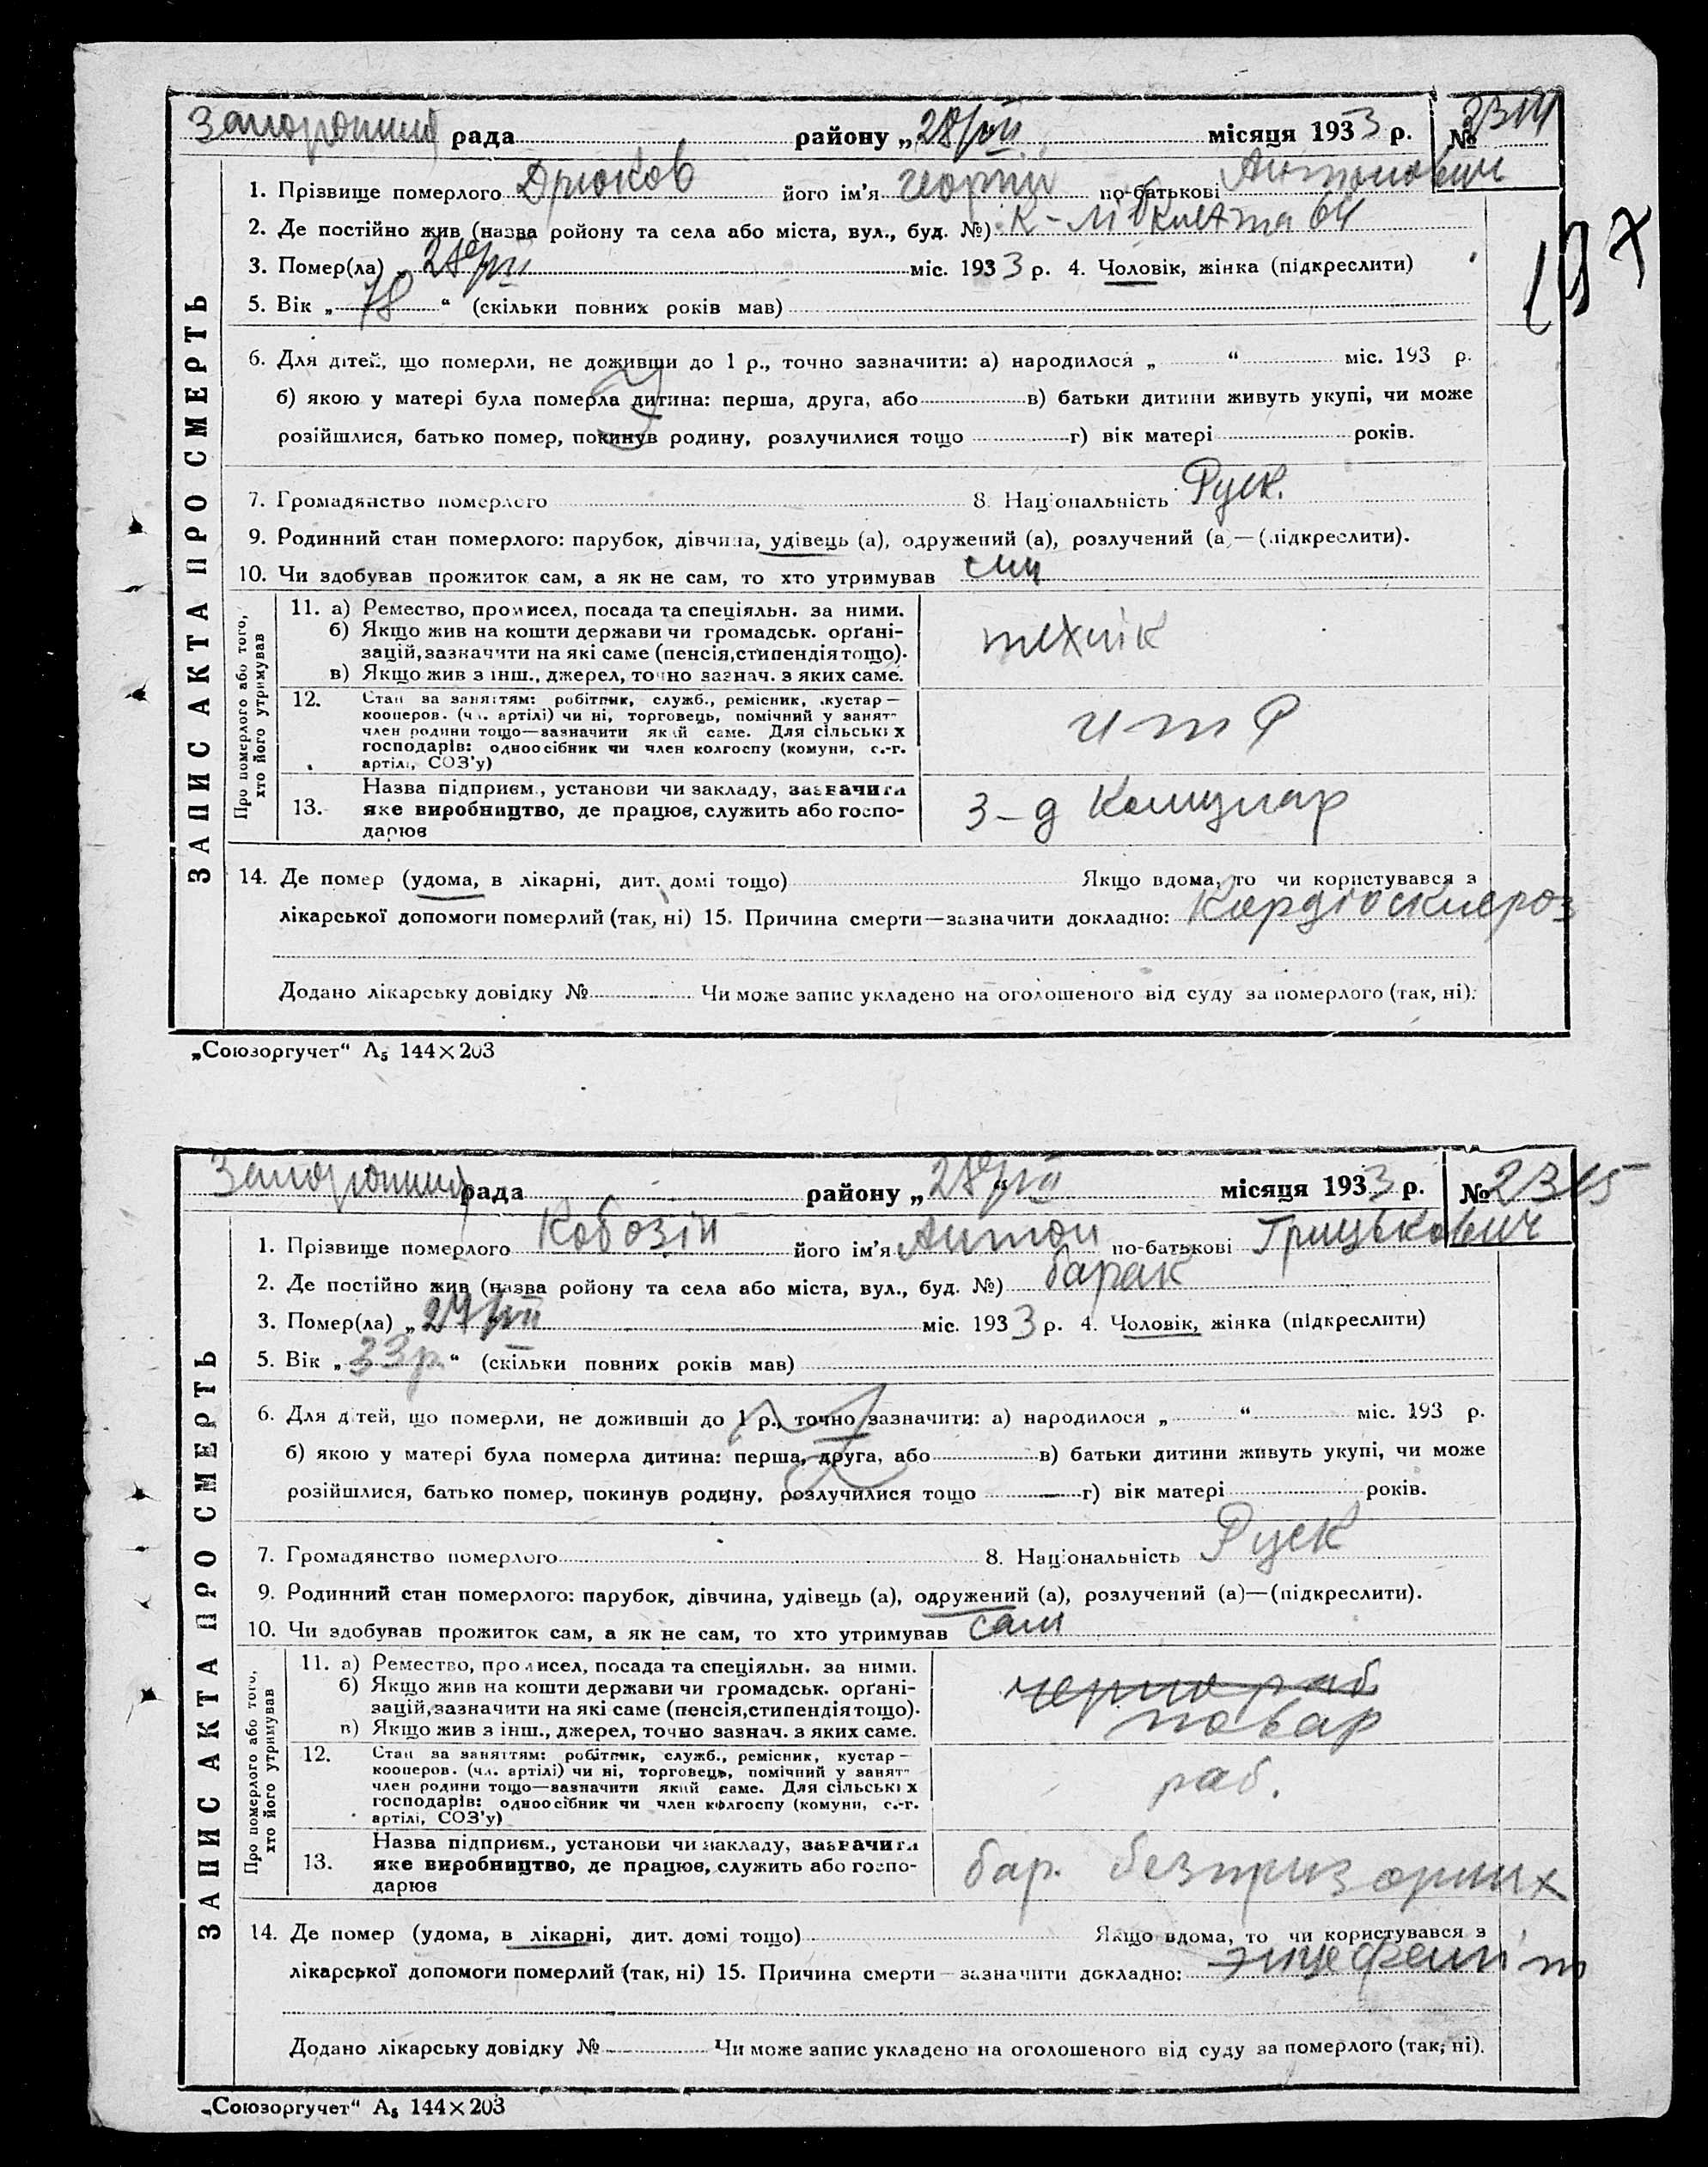 Запоріжжя рада району „28/VII місяця 1933 р. № 2314
1. Прізвище померлого Дрюков його ім'я Георгій по-батькові Антонович
2. Де постійно жив (назва ройону та села або міста, вул., буд. №) 64
3. Помер(ла) „ 28/VII міс. 1933 р. 4. Чоловік, жінка (підкреслити)
5. Вік „ 78 “ (скільки повних років мав)
6. Для дітей, що померли, не доживши до 1 р., точно зазначити: а) народилося „ “ міс. 193 р.
б) якою у матері була померла дитина: перша, друга, або в) батьки дитини живуть укупі, чи може
розійшлися, батько помер, покинув родину, розлучилися тощо г) вік матері років.
7. Громадянство померлого 8. Національність Руск.
9. Родинний стан померлого: парубок, дівчина, удівець (а), одружений (а), розлучений (а)—(підкреслити).
10. Чи здобував прожиток сам, а як не сам, то хто утримував син
ЗАПИС АКТА ПРО СМЕРТЬ
Про померлого або того, хто його утримував
11. а) Ремество, промисел, посада та спеціяльн. за ними.
б) Якщо жив на кошти держави чи громадськ. орґані-
зацій, зазначити на які саме (пенсія, стипендія тощо).
в) Якщо жив з інш., джерел, точно зазнач. з яких саме.
технік
12. Стан за заняттям: робітник, служб., ремісник, кустар—
кооперов. (чл. артілі) чи ні, торговець, помічний у занят-
член родини тощо—зазначити який саме. Для сільських
господарів: одноосібник чи член колгоспу (комуни, с.-г.
артілі, СОЗ'у)
итр
13. Назва підприєм., установи чи закладу, зазначити
яке виробництво, де працює, служить або госпо-
дарює
З-д Комунар
14. Де помер (удома, в лікарні, дит. домі тощо) Якщо вдома, то чи користувався з
лікарської допомоги померлий (так, ні) 15. Причина смерти—зазначити докладно: Кардіосклероз
Додано лікарську довідку № Чи може запис укладено на оголошеного від суду за померлого (так, ні).
„Союзоргучет“ А₅ 144×203
Запоріжжя рада району „28/VII місяця 1933 р. № 2315
1. Прізвище померлого Кобозін його ім'я Антон по-батькові Грицькович
2. Де постійно жив (назва ройону та села або міста, вул., буд. №) барак
3. Помер(ла) „ 27/VII міс. 1933 р. 4. Чоловік, жінка (підкреслити)
5. Вік „ 33 р. “ (скільки повних років мав)
6. Для дітей, що померли, не доживши до 1 р., точно зазначити: а) народилося „ “ міс. 193 р.
б) якою у матері була померла дитина: перша, друга, або в) батьки дитини живуть укупі, чи може
розійшлися, батько помер, покинув родину, розлучилися тощо г) вік матері років.
7. Громадянство померлого 8. Національність Руск
9. Родинний стан померлого: парубок, дівчина, удівець (а), одружений (а), розлучений (а)—(підкреслити).
10. Чи здобував прожиток сам, а як не сам, то хто утримував сам
ЗАПИС АКТА ПРО СМЕРТЬ
Про померлого або того, хто його утримував
11. а) Ремество, промисел, посада та спеціяльн. за ними.
б) Якщо жив на кошти держави чи громадськ. орґані-
зацій, зазначити на які саме (пенсія, стипендія тощо).
в) Якщо жив з інш., джерел, точно зазнач. з яких саме.
чернораб
повар
12. Стан за заняттям: робітник, служб., ремісник, кустар—
кооперов. (чл. артілі) чи ні, торговець, помічний у занят-
член родини тощо—зазначити який саме. Для сільських
господарів: одноосібник чи член колгоспу (комуни, с.-г.
артілі, СОЗ'у)
раб.
13. Назва підприєм., установи чи закладу, зазначити
яке виробництво, де працює, служить або госпо-
дарює
бар. безпризорних
14. Де помер (удома, в лікарні, дит. домі тощо) Якщо вдома, то чи користувався з
лікарської допомоги померлий (так, ні) 15. Причина смерти—зазначити докладно: энцефаліт
Додано лікарську довідку № Чи може запис укладено на оголошеного від суду за померлого (так, ні).
„Союзоргучет“ А₅ 144×203